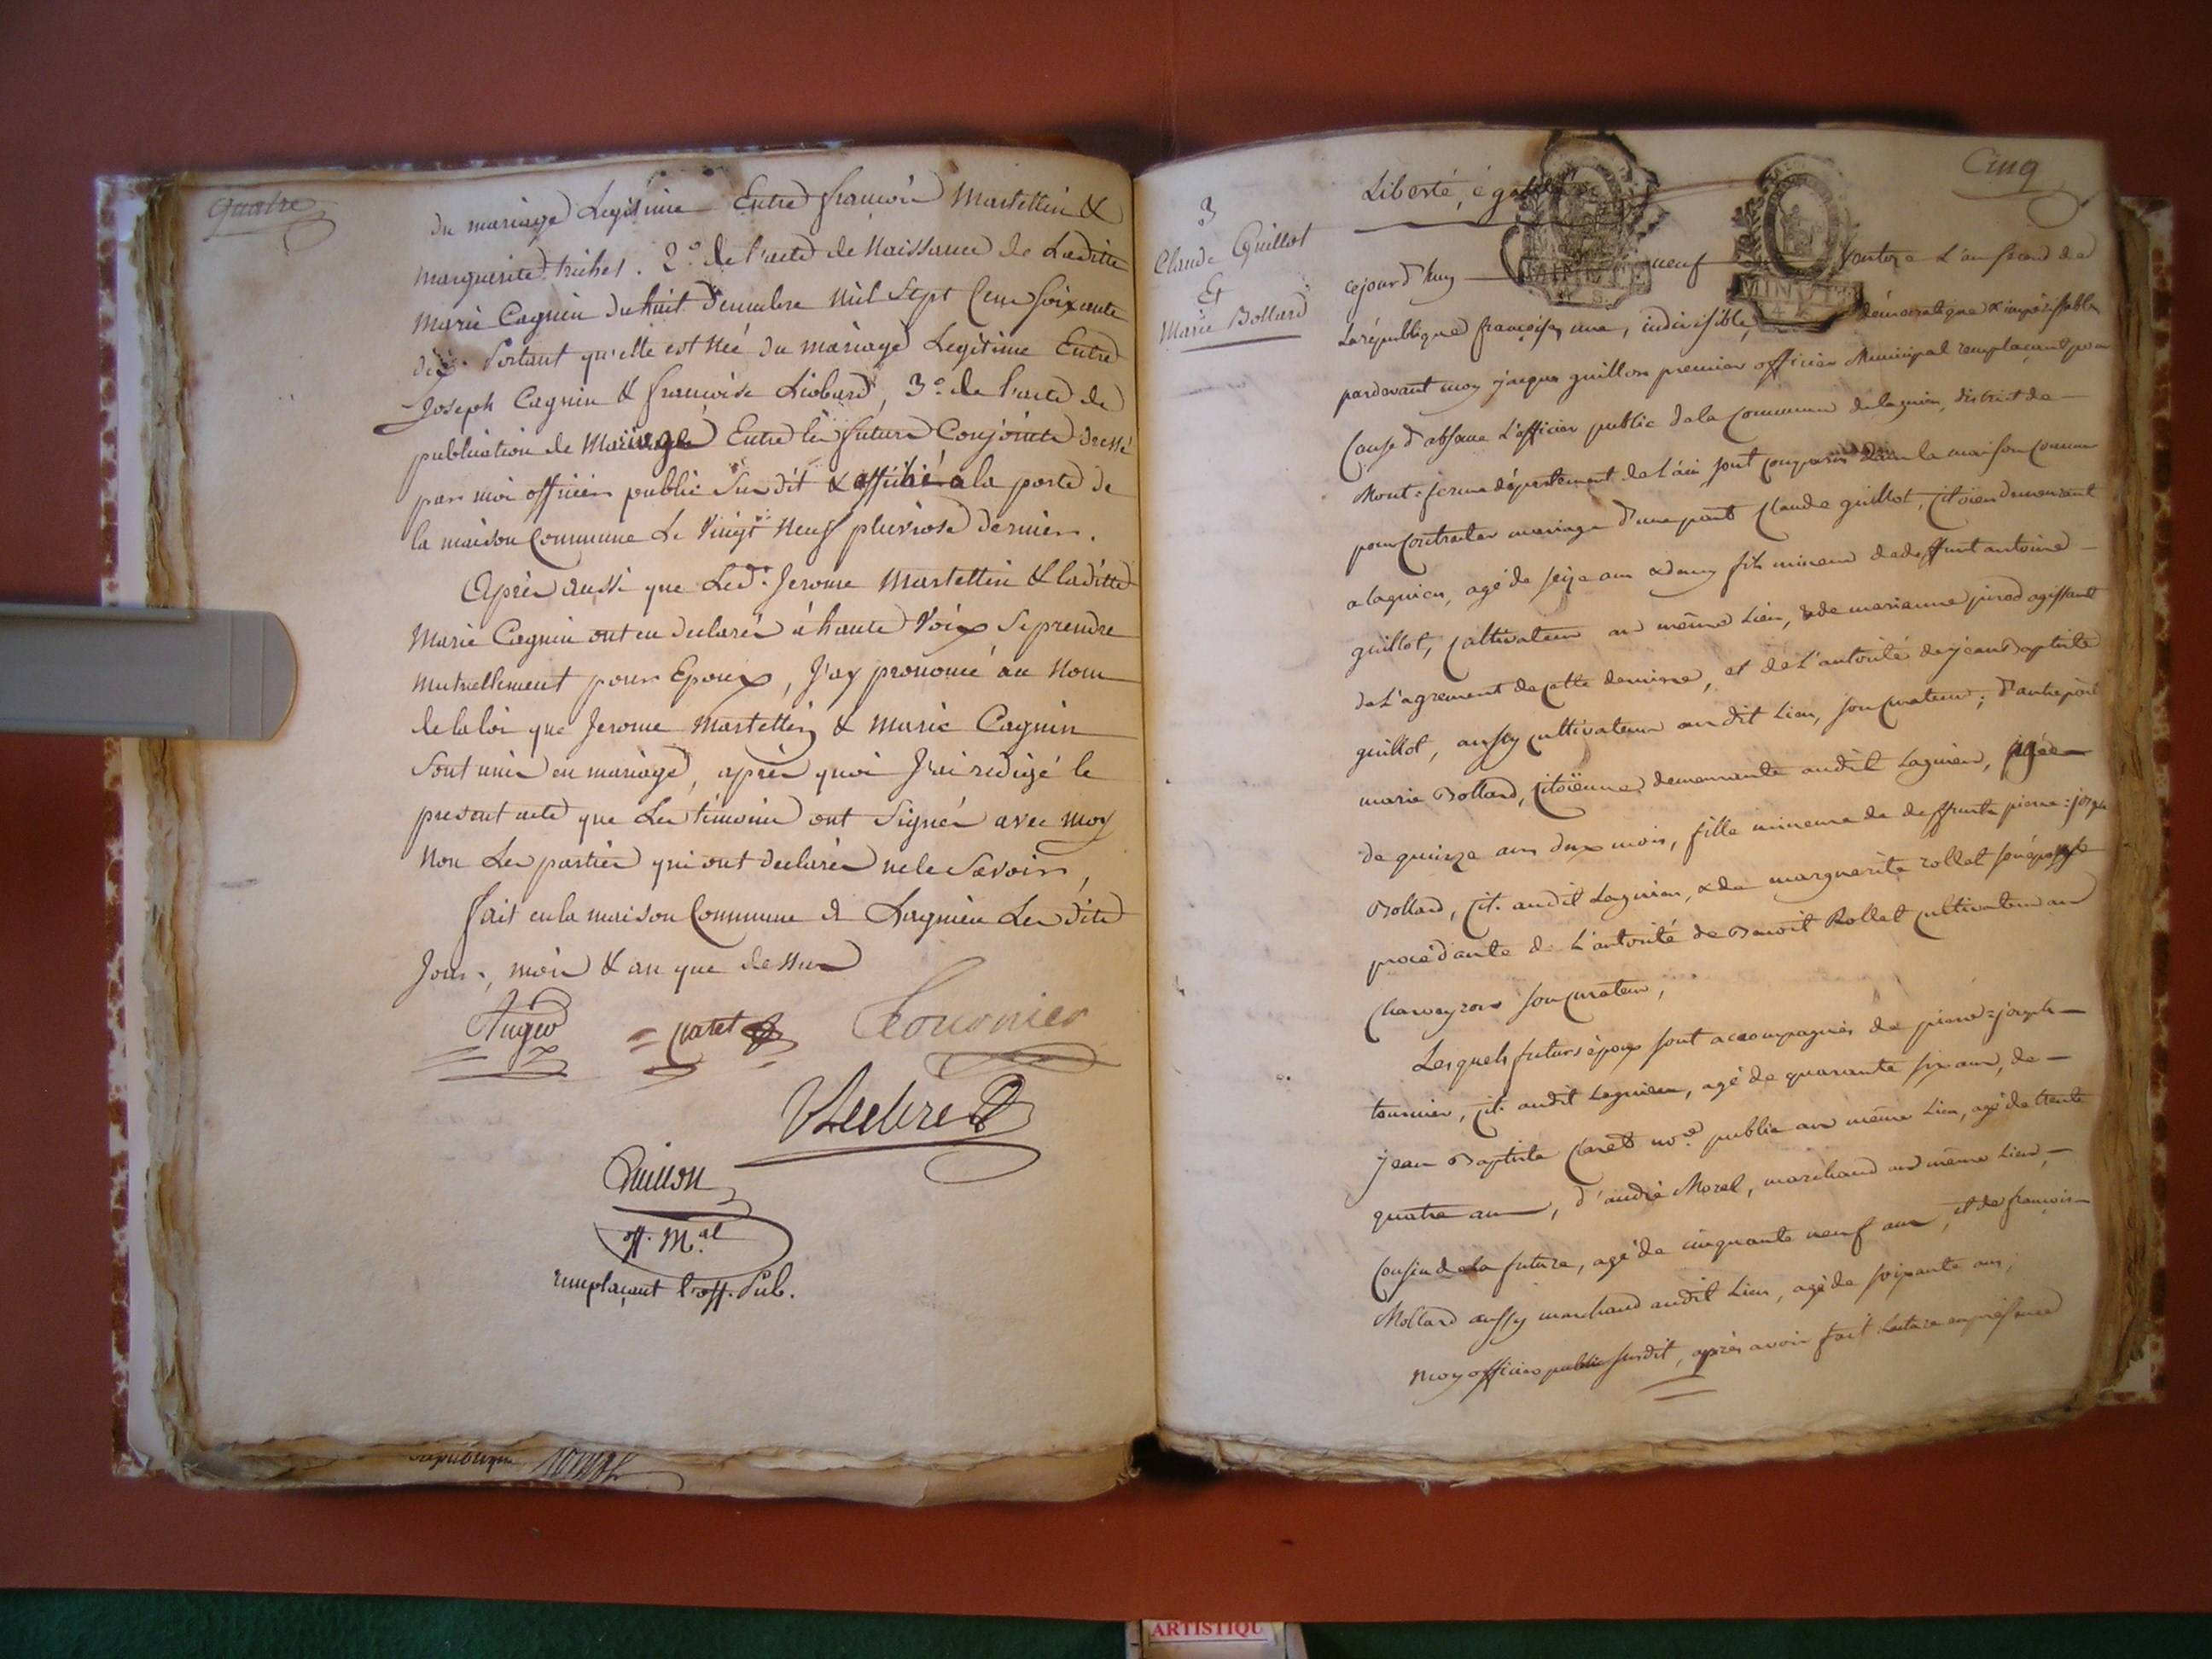 quatre
du mariage Legitime Entre françois Martettin &
marguerite trichet. 2.° de l'acte de Naissance de Laditte
Marie Cagnin du huit Decembre Mil Sept Cent soixante
dix. Portant qu'elle est Née du mariage Legitime Entre
Joseph Cagnin & françoise Liobard, 3.° de l'acte de
publication de Mariage Entre les futurs Conjoints dressé
par moi officier public Susdit & affiché a la porte de
la maison Commune Le Vingt Neuf pluviose dernier.
Après aussi que Led.t Jerome Martettin & laditte
Marie Cagnin ont eu declarés à haute Voix Se prendre
mutuellement pour Epoux, J'ay prononcé au Nom
de la loi que Jerome Martettin & Marie Cagnin
Sont unis en mariage, après quoi J'ai redigé le
present acte que Les témoins ont Signés avec moy
Non Les parties qui ont declarés ne le Savoir,
fait en la maison Commune de Lagnieu Les dits
Jour, mois & an que dessus
Auger = caret Tournier
Guillon
off. M.al
remplaçant l'off. Pub.
Cinq
3
Claude Guillot
Et
Marie Bollard
Liberté, égalité
cejourd'huy neuf ventoze L'an second de
La république françoise, une, indivisible, démocratique & impérissable
pardevant moy jacques guillon premier officier Municipal remplaçant pour
Cause d'absence L'officier public de la Commune de lagnieu, district de
Mont=ferme département de L'ain sont comparus dans la maison commune
pour contracter mariage d'une part Claude guillot, citoïen demeurant
a lagnieu, agé de seize ans & demy fils mineur de deffunt antoine
guillot, cultivateur au même Lieu, & de marianne jurod agissant
de L'agrement de cette derniere, et de L'autorité de jean Baptiste
guillot, aussy cultivateur au dit Lieu, son curateur; d'autre part
marie Bollard, citoïenne demeurante audit Lagnieu, agée
de quinze ans deux mois, fille mineure de deffunts pierre=joseph
Bollard, cit. audit Lagnieu, & de marguerite rollet son épouse
procédante de L'autorité de Benoit Rollet cultivateur au
Charveyron son curateur,
Lesquels futurs époux sont accompagnés de pierre=joseph
tournier, cit. audit Lagnieu, agé de quarante six ans, de
jean Baptiste Caret no.re public au même Lieu, agé de trente
quatre ans, d'andré Morel, marchand au même Lieu,
Cousin de La future, agé de cinquante neuf ans, et de françois
Mollard aussy marchand audit Lieu, agé de soixante ans,
Moy officier public susdit, après avoir fait Lecture en présence
republique
MINUTE
ARTISTIQU